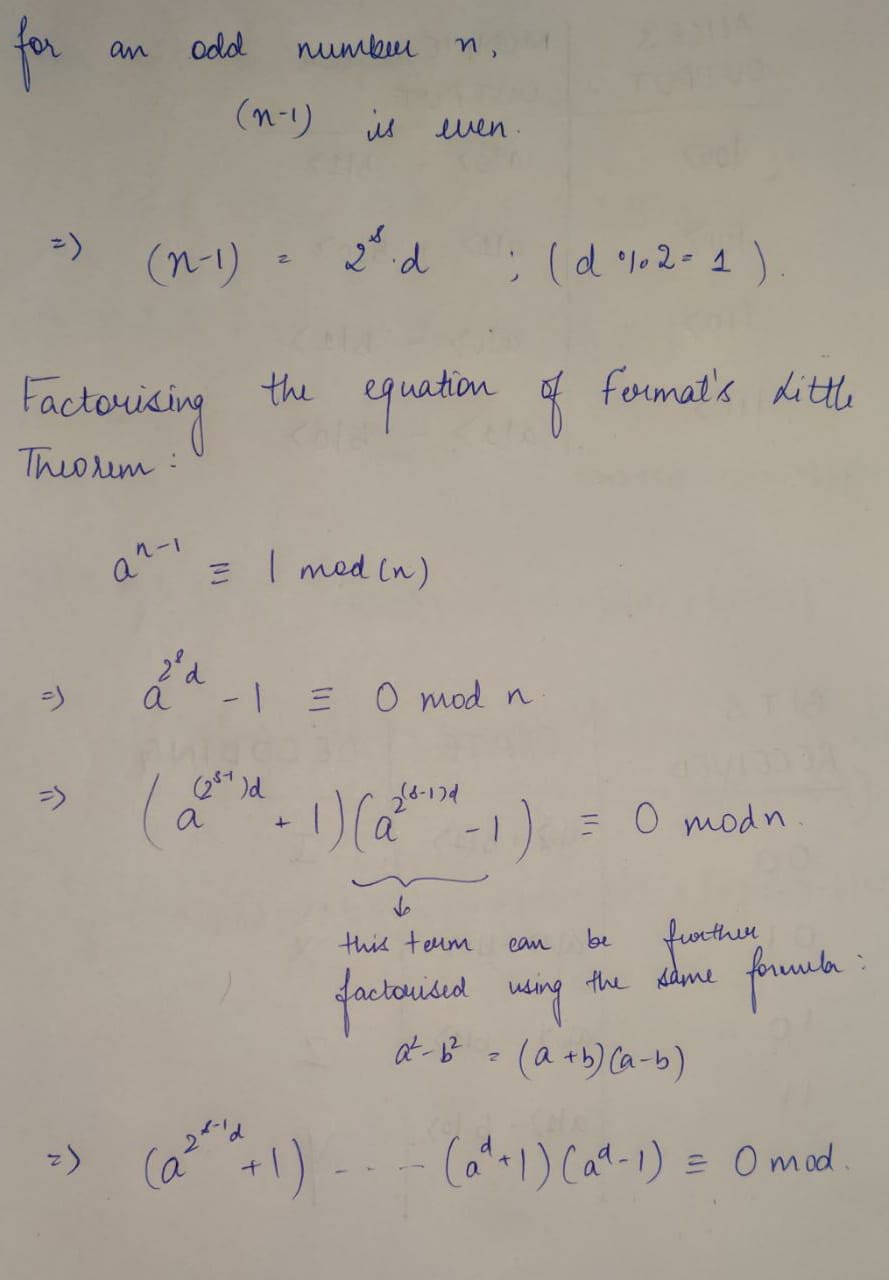 for an odd number n,
(n-1) is even.
=> (n-1) = 2^s.d ; (d % 2 = 1).
Factorising the equation of Fermat's Little
Theorem :
a^{n-1} ≡ 1 mod (n)
=> a^{2^s d} - 1 ≡ 0 mod n
=> (a^{(2^{s-1})d} + 1)(a^{2^{(s-1)d}} - 1) ≡ 0 mod n.
this term can be further
factorised using the same formula :
a² - b² = (a + b)(a - b)
=> (a^{2^{s-1}d} + 1) - - - - (a^d + 1)(a^d - 1) ≡ 0 mod.